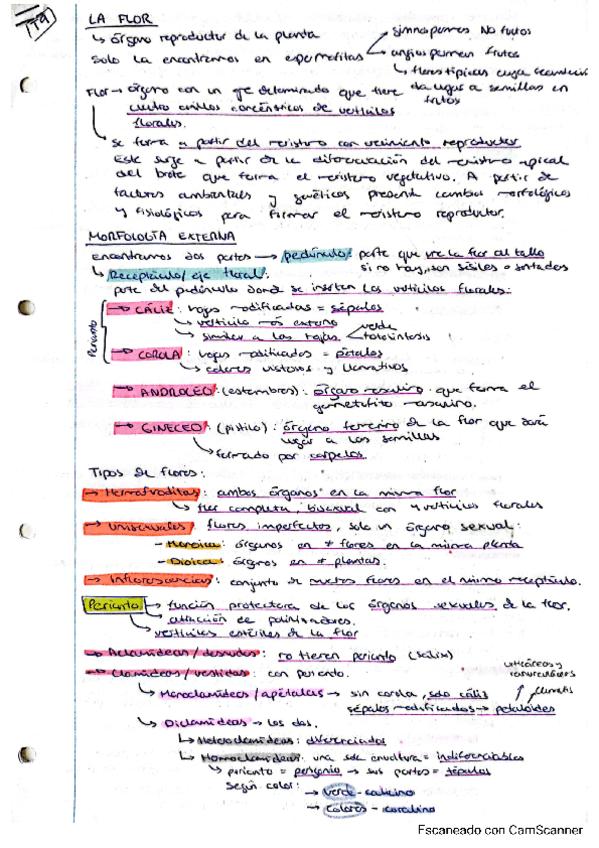 T9
LA FLOR
↳ órgano reproductor de la planta
gimnospermas NO frutos
Solo la encontramos en espermafitas
angiospermas frutos
↳ flores típicas cuya
da lugar a semillas en
frutos
Flor → órgano con un eje determinado que tiene
cuatro anillos concéntricos de verticilos
florales.
Se forma a partir del meristemo con crecimiento reproductor
Este surge a partir de la diferenciación del meristemo apical
del brote que forma el meristemo vegetativo. A partir de
factores ambientales y genéticos presenta cambios morfológicos
y fisiológicos para formar el meristemo reproductor.
MORFOLOGÍA EXTERNA
Encontramos dos partes → pedúnculo: parte que une la flor al tallo
si no hay, son sésiles o sentadas
↳ Receptáculo/eje floral:
parte del pedúnculo donde se insertan los verticilos florales:
Perianto
→ CÁLIZ: hojas modificadas = sépalos
↳ verticilo más externo
↳ similar a las hojas
verde
fotosíntesis
→ COROLA: hojas modificadas = pétalos
↳ colores vistosos y llamativos
→ ANDROCEO: (estambres): órgano masculino que forma el
gametofito masculino.
→ GINECEO: (pistilo): órgano femenino de la flor que dará
lugar a las semillas
↳ formado por carpelos
Tipos de flores:
→ Hermafroditas: ambos órganos en la misma flor
↳ flor completa, bisexual con 4 verticilos florales
→ Unisexuales: flores imperfectas, solo un órgano sexual:
- Monoica: órganos en ≠ flores en la misma planta
- Dioica: órganos en ≠ plantas.
→ Inflorescencias: conjunto de muchas flores en el mismo receptáculo.
Perianto → función protectora de los órganos sexuales de la flor.
↳ atracción de polinizadores.
↳ verticilos estériles de la flor
→ Aclamídeas/desnudas: no tienen perianto
→ Clamídeas/vestidas: con perianto.
↳ Monoclamídeas/apétalas → sin corola, solo cáliz
sépalos modificados → petaloides
↳ Diclamídeas → los dos.
↳ Heteroclamídeas: diferenciados
↳ Homoclamídeas: una sola envoltura = indiferenciables
↳ perianto = perigonio → sus partes = tépalos
Según color:
→ verde - calicino
→ colores - corolino
Escaneado con CamScanner